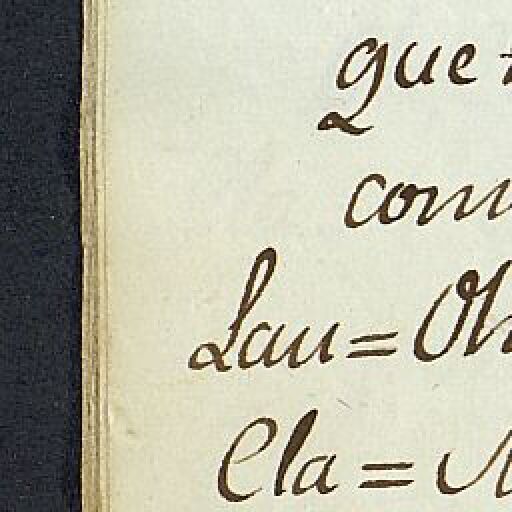 que
com
Lau = Oh
Cla =